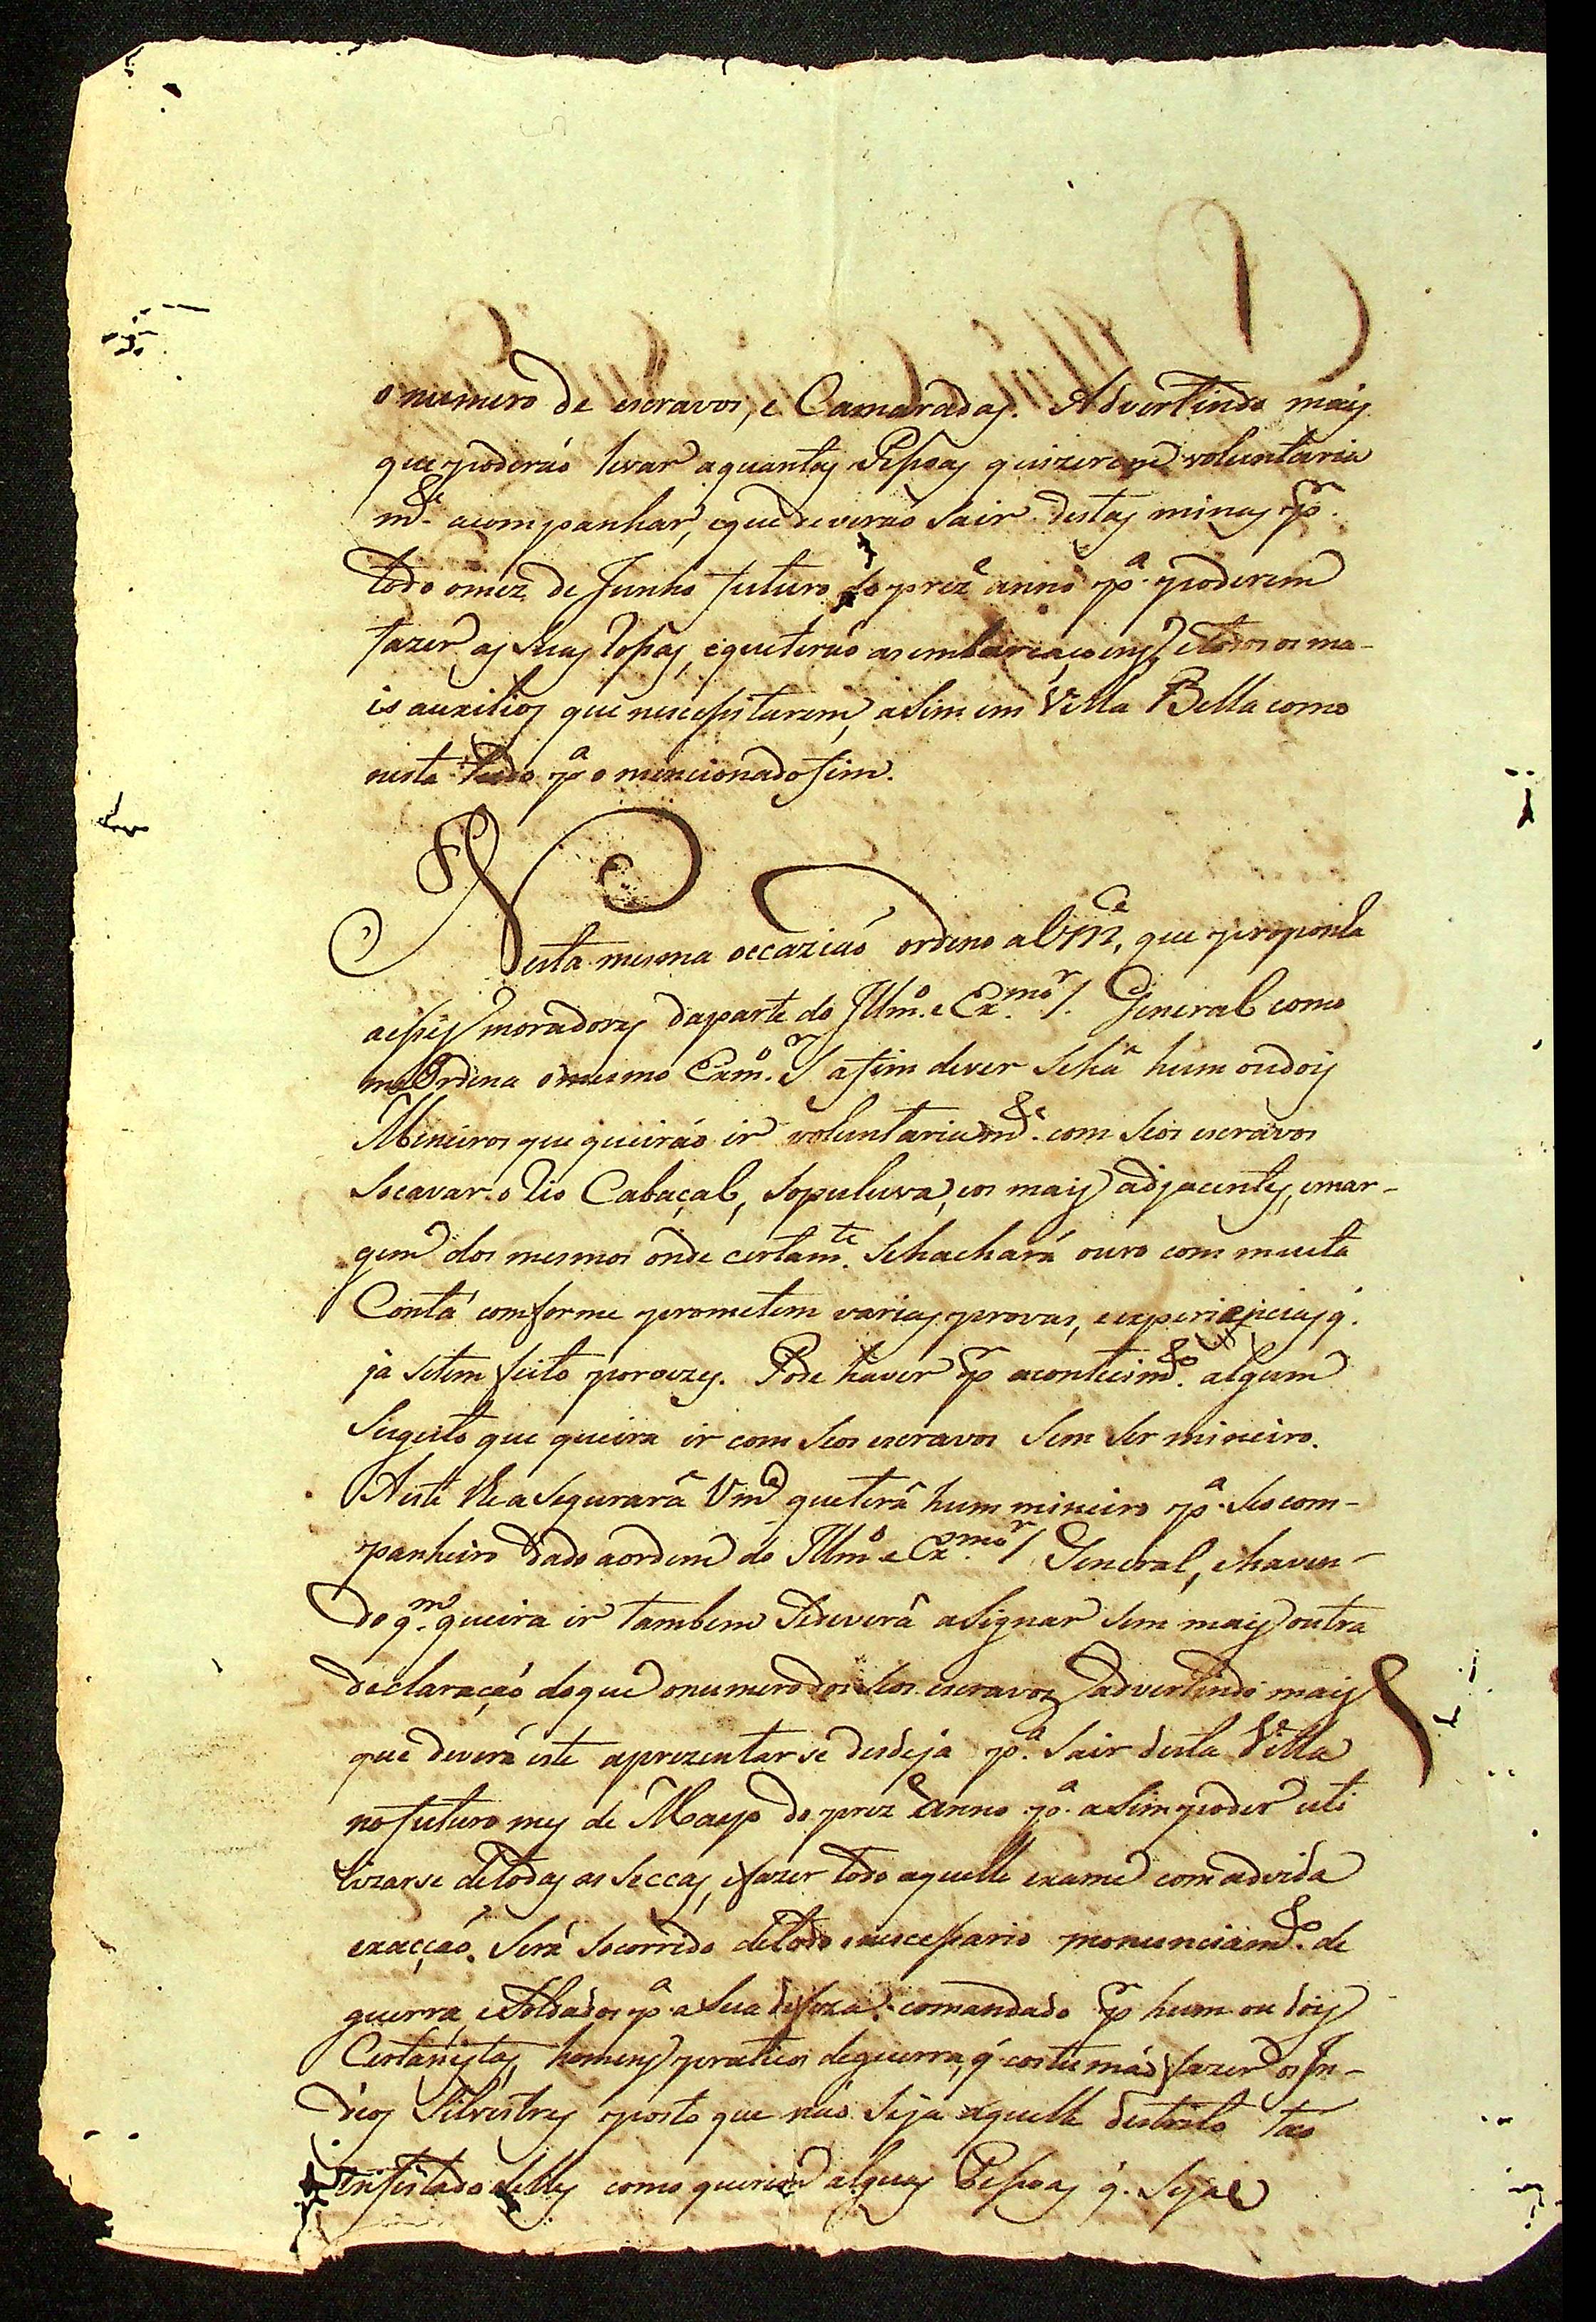 o numero de escravos, e Camaradas. Advertindo mais
que poderáo levar aquantas Pessoas quizerem voluntaria
mte. acompanhar, eque deveráo sair destas minas pr.
todo omez de Junho futuro do preze. anno pa. poderem
fazer as suas rossas, eque teráo as embarcaçoens, etodos os ma-
is auxilios que nescessitarem, asim em Villa Bella como
nesta pa. o mencionado fim.
Nesta mesma occaziáo ordeno a Vmce. que proponha
aesses moradores daparte do Illmo. e Exmo. Sr. General como
me Ordena omesmo Exmo. Sr. afim dever sehá hum oudois
Mineiros que queiráo ir voluntariamte. com seos escravos
socavar o Rio Cabaçal, Sopuluva, eos mais adjacentes, emar-
gem dos mesmos onde certamte. sehachará ouro com muita
Conta conforme prometem varias provas, eexperiencias q.
ja setem feito por vezes. Pode haver pr. acontecimto. algum
Sugeito que queira ir com seos escravos sem ser mineiro.
Aeste lhe asegurará Vmce. queterá hum mineiro pa. seo com-
panheiro dado aordem do Illmo. e Exmo. Sr. General, ehaven-
do qm. queira ir tambem sedeverá asignar sem mais outra
declaraçáo doque onumero dos seos escravos, advertindo mais
que deverá este aprezentarse desdeja pa. sair desta Villa
no futuro mes de Mayo do preze. anno pa. asim poder uti
lizarse detodas as seccas, efazer todo aquelle exame com adevida
exacçáo. Será socorrido detodo onescessario moniciamto. de
guerra, eSoldados pa. a sua defeza, comandado pr. hum ou dois
Certanistas, homens praticos deguerra, q costumáo fazer os In-
dios Silvestres posto que náo seja aquelle destrito tao
Infestado delles como querem alguas Pessoas q. seja